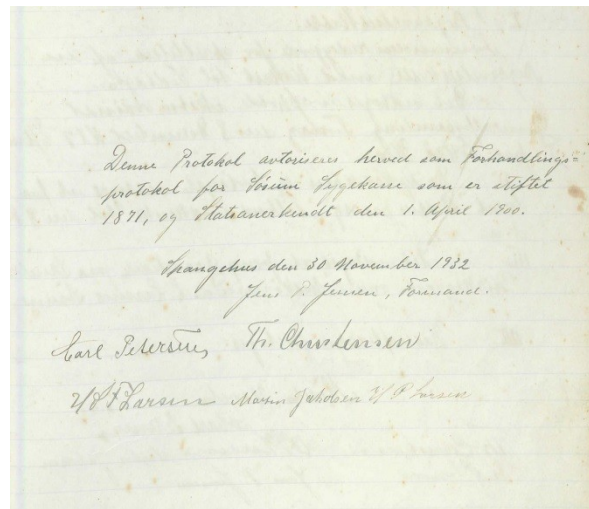 Denne Protokol avtoriseres herved som Forhandlings=
protokol for Søsum Sygekasse som er stiftet
1871, og Statsanerkendt den 1. April 1900.
Spangehus den 30 November 1932
Jens P. Jensen, Formand.
Carl Petersen, Th. Christensen
Larsen Marin Jakobsen P Larsen